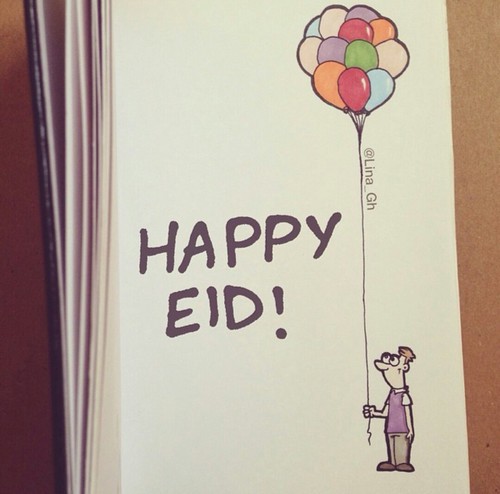 @Lina_Gh
HAPPY
EID!